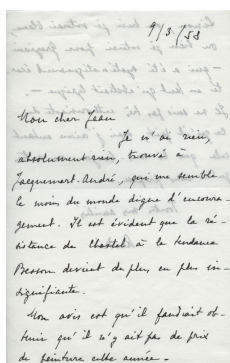 9/3/53
Mon cher Jean
Je n'ai rien,
absolument rien, trouvé à
Jacquemart-André, qui me semble
le moins du monde digne d'encoura-
gement. Il est évident que la ré-
sistance de Chastel à la tendance
Besson devient de plus en plus in-
signifiante.
Mon avis est qu'il faudrait ob-
tenir qu'il n'y ait pas de prix
de peinture cette année -